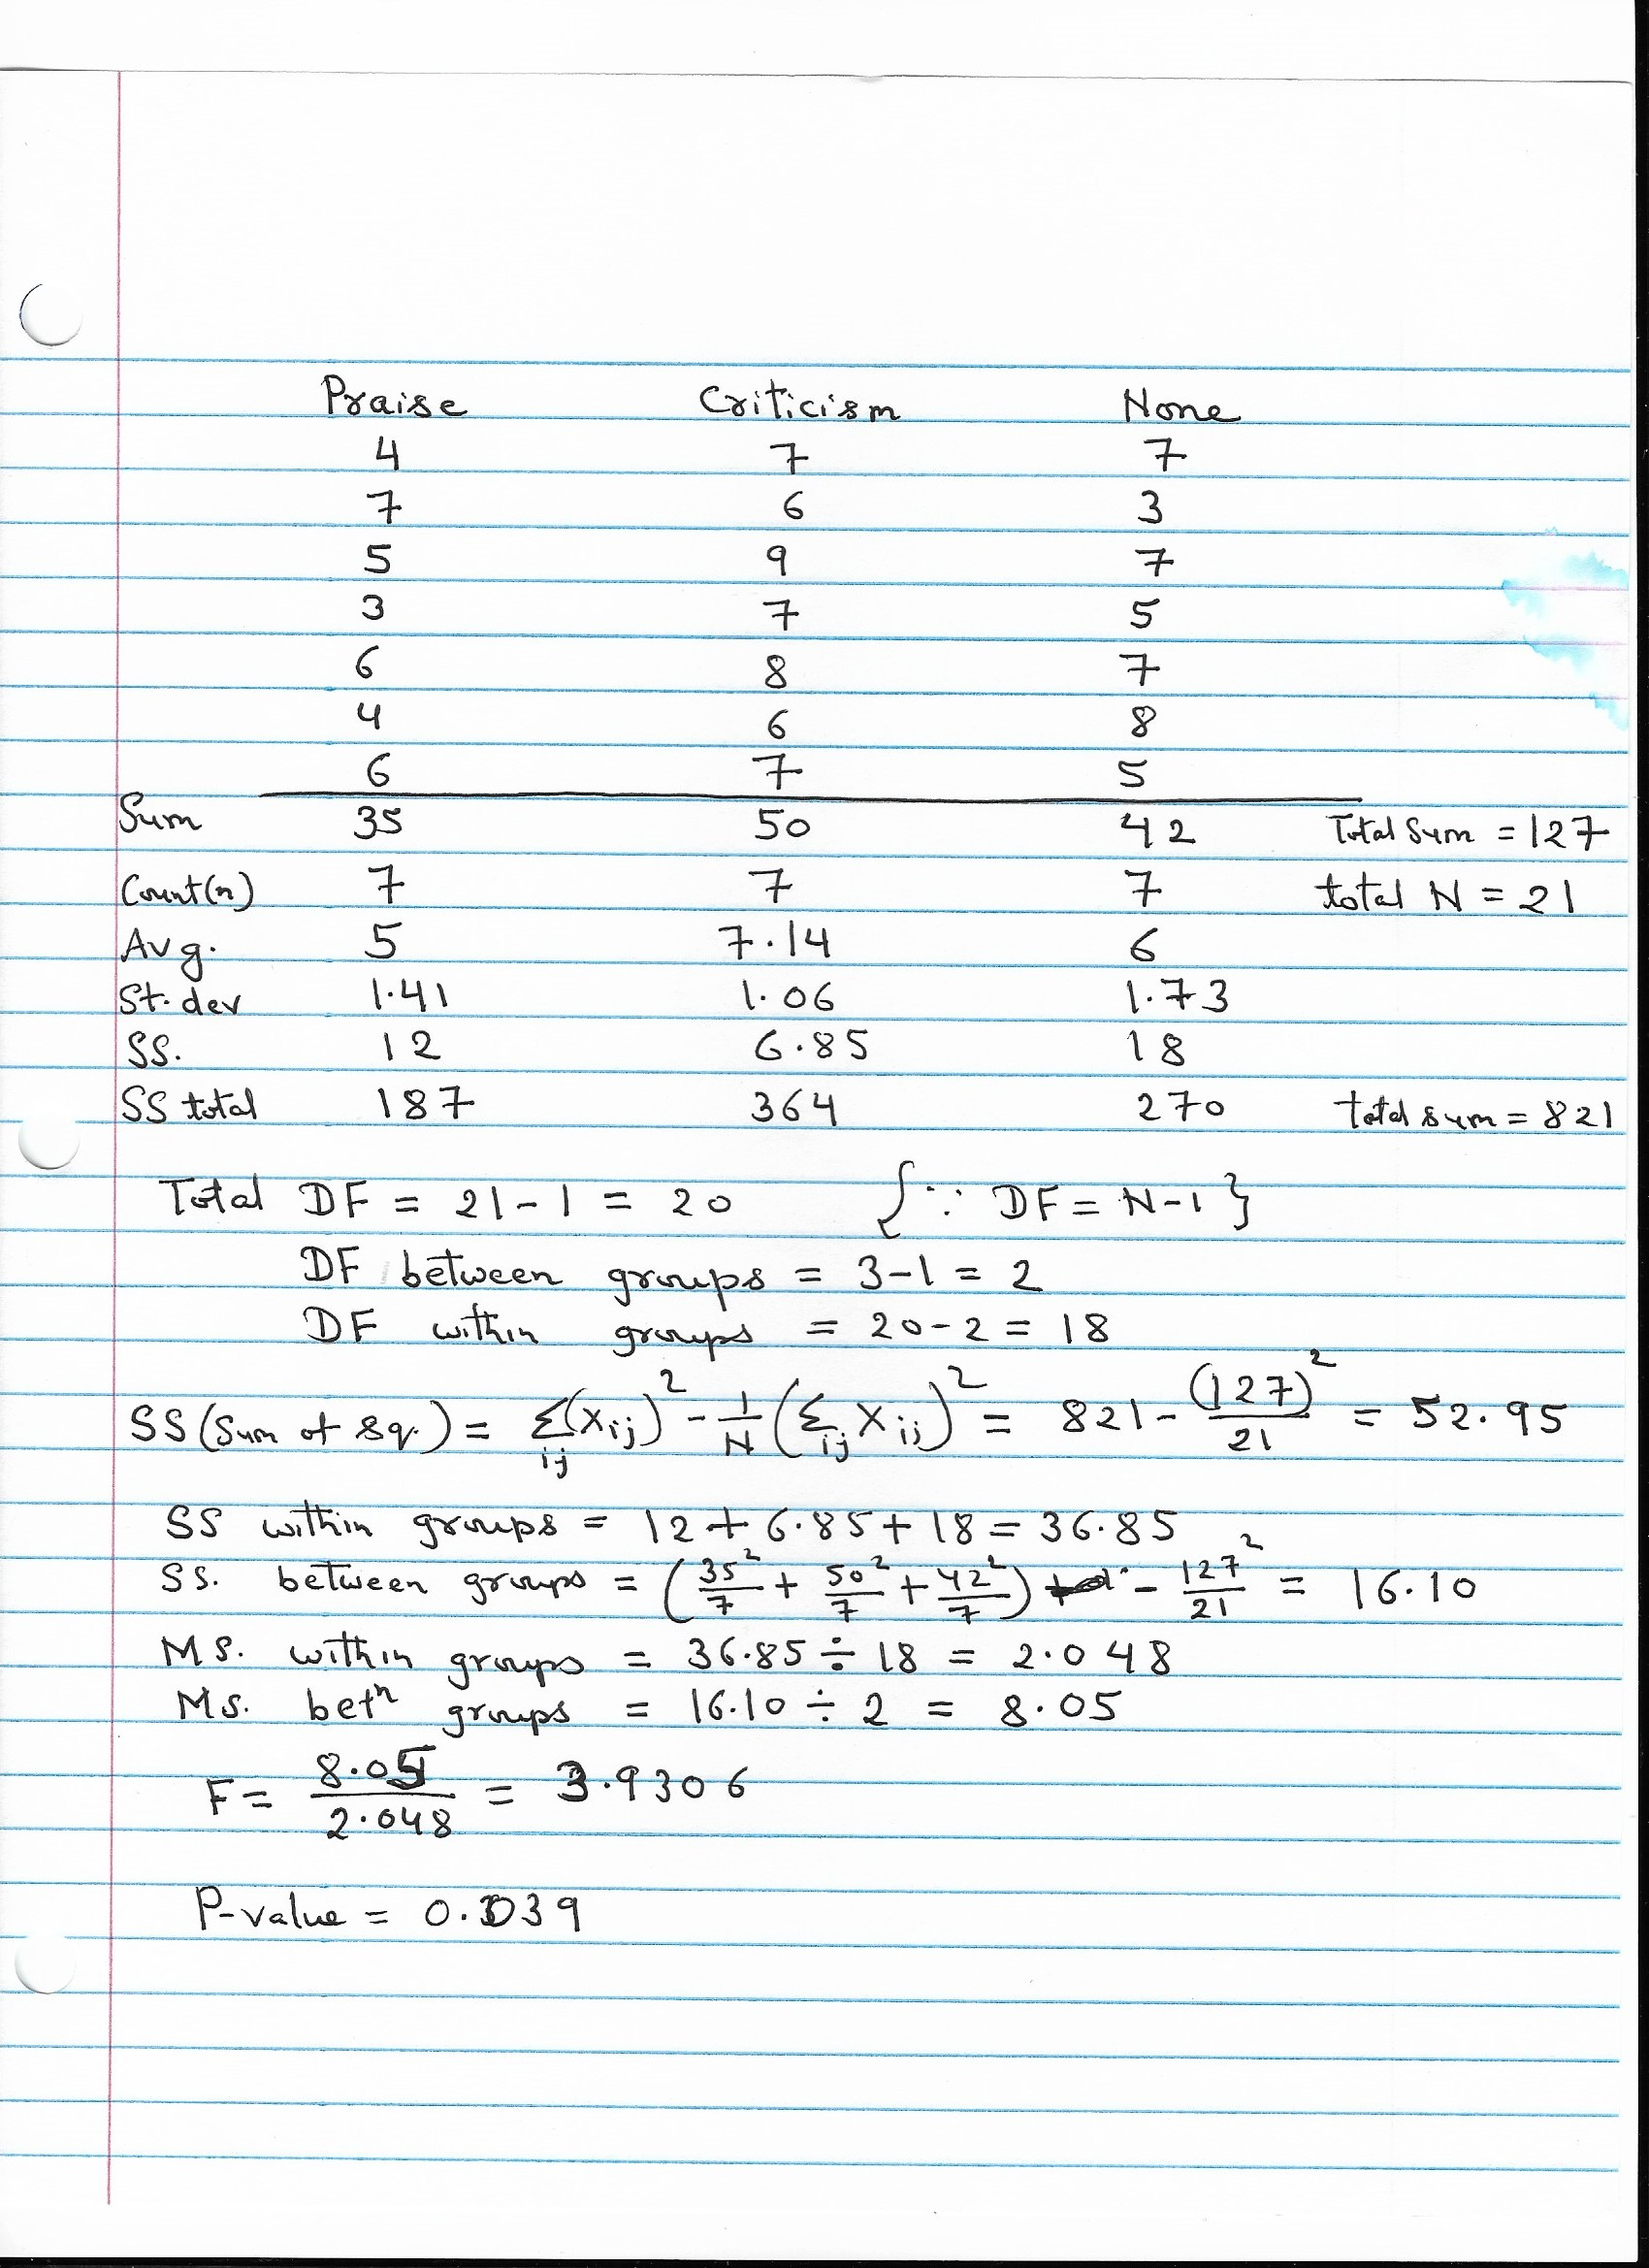 Praise Criticism None
4 7 7
7 6 3
5 9 7
3 7 5
6 8 7
4 6 8
6 7 5
Sum 35 50 42 Total Sum = 127
Count(n) 7 7 7 total N = 21
Avg. 5 7.14 6
St. dev 1.41 1.06 1.73
SS. 12 6.85 18
SS total 187 364 270 total sum = 821
Total DF = 21-1 = 20 {∵ DF = N-1}
DF between groups = 3-1 = 2
DF within groups = 20-2 = 18
SS (Sum of sq.) = Σij(Xij)² - 1/N (Σij Xij)² = 821 - (127)²/21 = 52.95
SS within groups = 12 + 6.85 + 18 = 36.85
SS. between groups = (35²/7 + 50²/7 + 42²/7) - 127²/21 = 16.10
MS. within groups = 36.85 ÷ 18 = 2.048
MS. betⁿ groups = 16.10 ÷ 2 = 8.05
F = 8.05/2.048 = 3.9306
P-value = 0.039